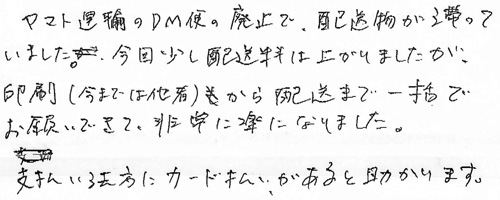 ヤマト運輸のDM便の廃止で、配送物が滞って
いました。今回少し配送料は上がりましたが、
印刷(今までは他者)から配送まで一括で
お願いできて、非常に楽になりました。
支払い方法にカード払いがあると助かります。